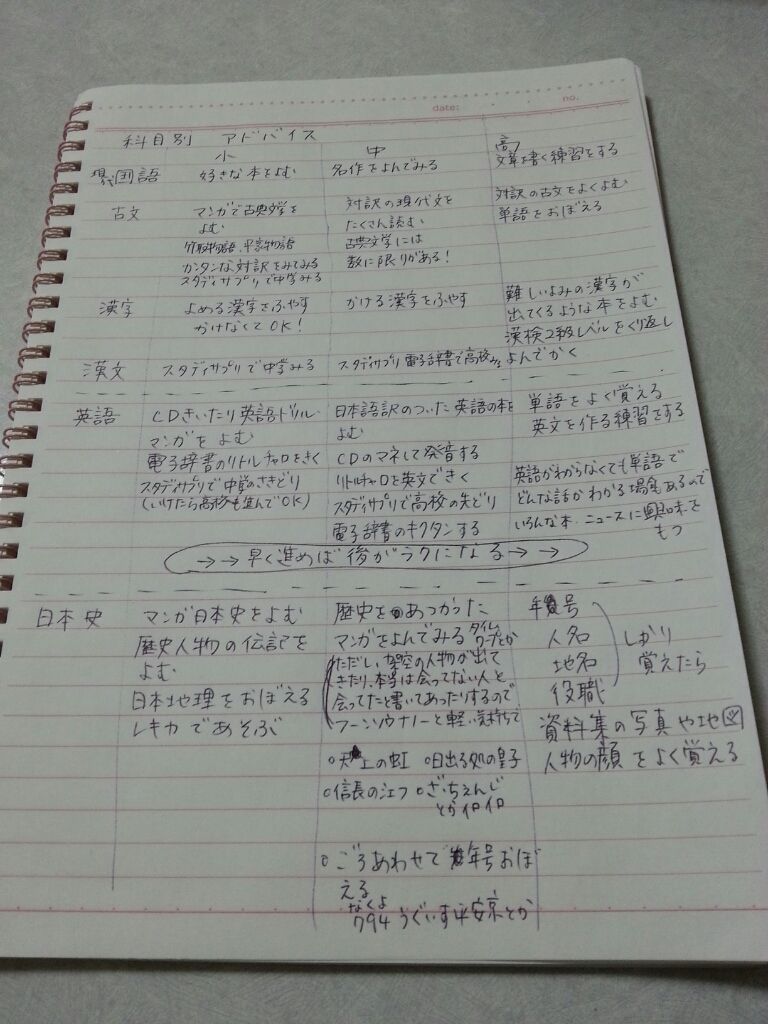 date: no.
科目別 アドバイス
小 中 高
現代国語 好きな本をよむ 名作をよんでみる 文章を書く練習をする
古文 マンガで古典文学を 対訳の現代文を 対訳の古文をよくよむ
よむ たくさん読む 単語をおぼえる
竹取物語、平家物語 古典文学には
カンタンな対訳をみてみる 数に限りがある!
スタディサプリで中学みる
漢字 よめる漢字をふやす かける漢字をふやす 難しいよみの漢字が
かけなくてOK! 出てくるような本をよむ
漢検2級レベルをくり返し
漢文 スタディサプリで中学みる スタディサプリ電子辞書で高校みる よんでかく
英語 CDきいたり英語ドリル 日本語訳のついた英語の本を 単語をよく覚える
マンガをよむ よむ 英文を作る練習をする
電子辞書のリトルチャロをきく CDのマネして発音する
スタディサプリで中学のさきどり リトルチャロを英文できく 英語がわからなくても単語で
(いけたら高校も進んでOK) スタディサプリで高校の先どり どんな話かわかる場合もあるので
電子辞書のキクタンする いろんな本、ニュースに興味を
もつ
→→早く進めば後がラクになる→→
日本史 マンガ日本史をよむ 歴史をあつかった 年号
歴史人物の伝記を マンガをよんでみる タイムワープとか 人名 しっかり
よむ ただし、架空の人物が出て 地名 覚えたら
日本地理をおぼえる きたり、本当は会ってない人と 役職
レキカであそぶ 会ってたと書いてあったりするので
フーンソウナノーと軽い気持ちで 資料集の写真や地図
○天上の虹 ○日出る処の皇子 人物の顔をよく覚える
○信長のシェフ ○ざ・ちぇんじ
とかイロイロ
○ごろあわせで年号おぼ
える
なくよ
794 うぐいす平安京とか